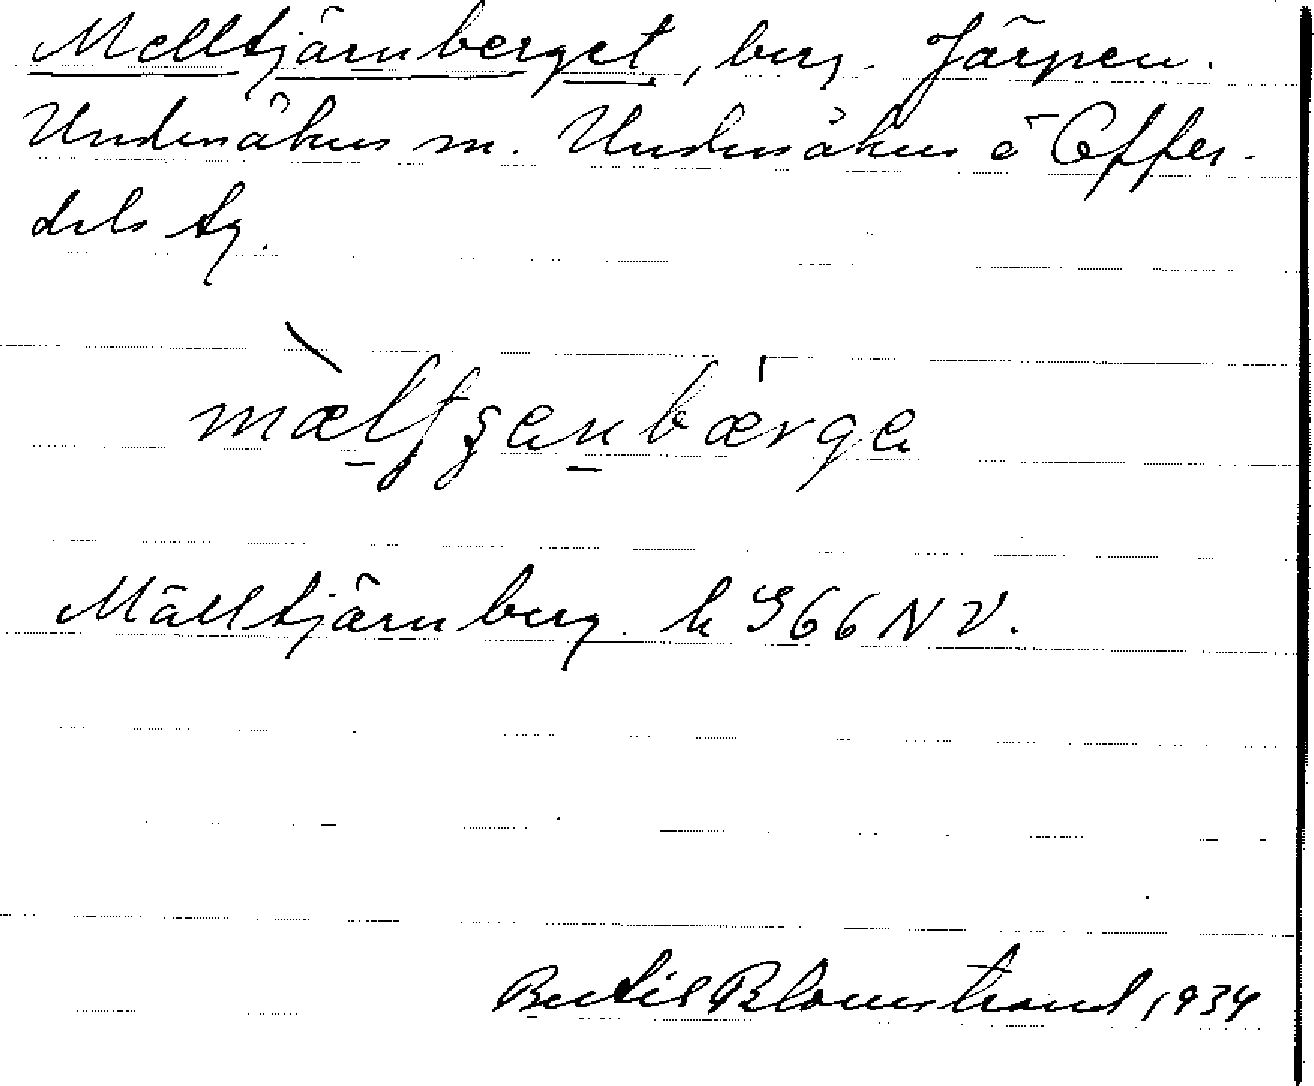 Melltjärnberget, berg. Järpen.
Undersåkers sn. Undersåkers o Offer-
dals tg.
mæltʃęnbærge
Mälltjärnberg. k S66 NV.
Bertil Blomstrand, 1934